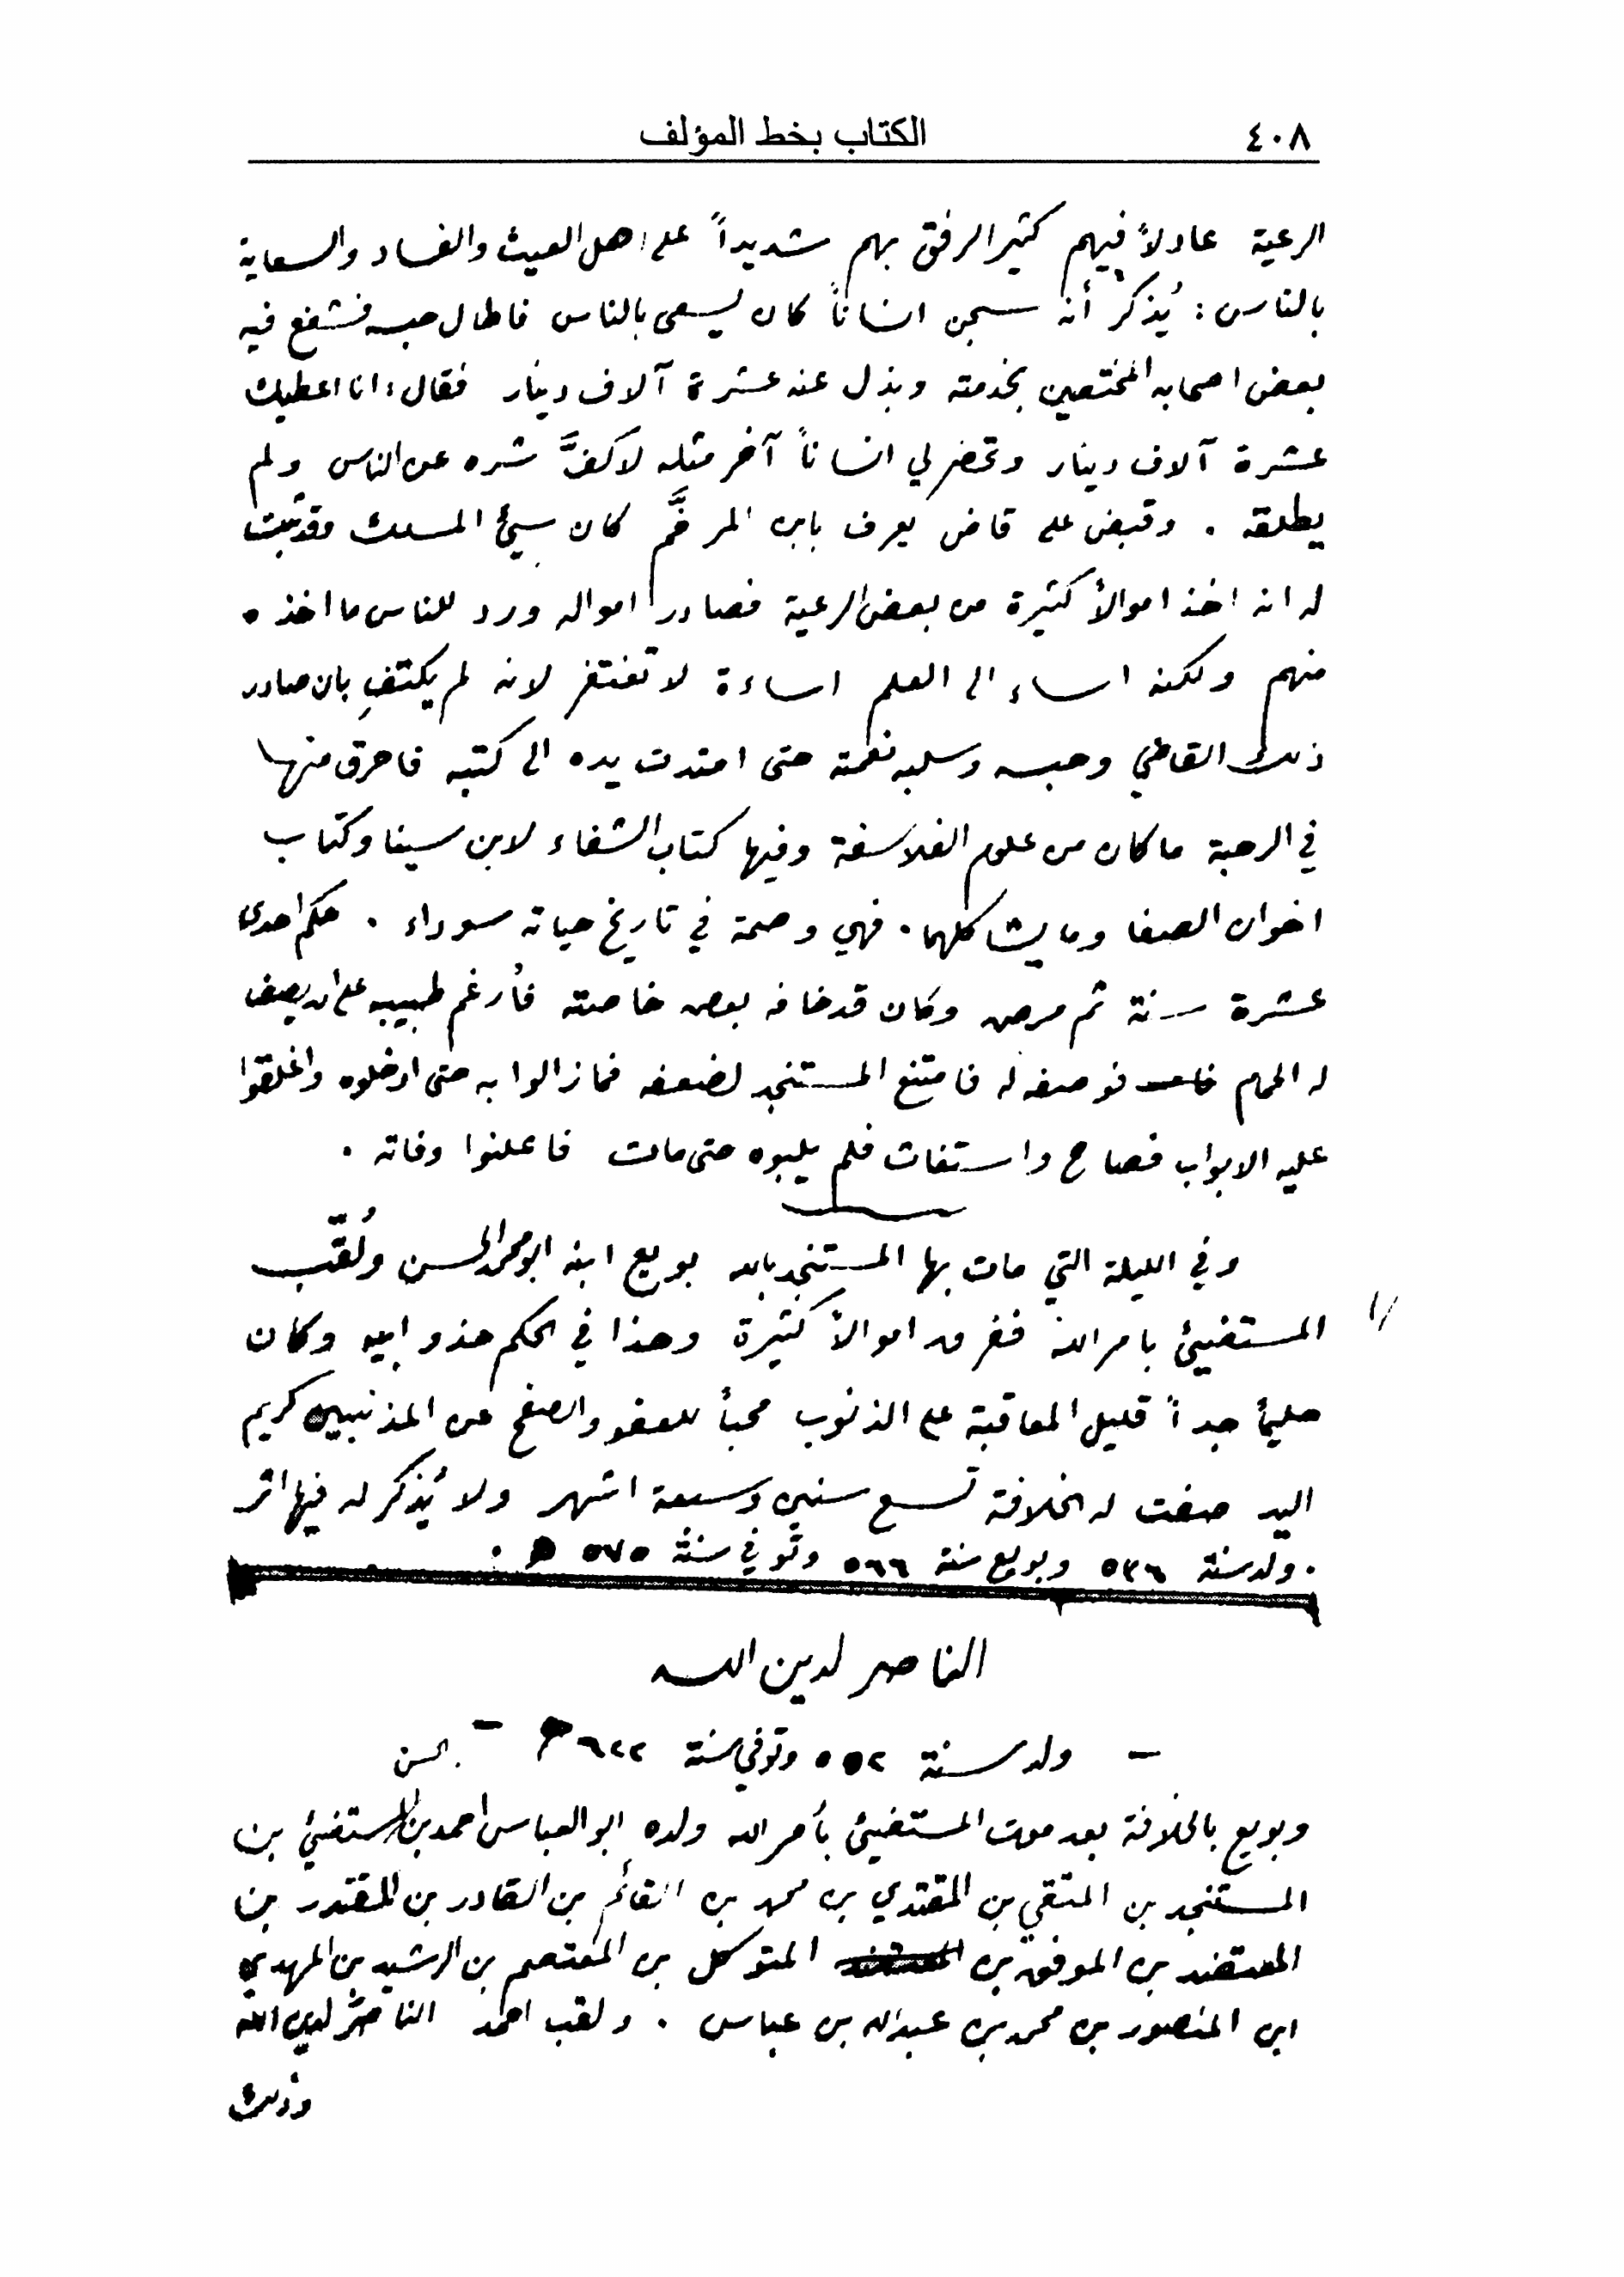 ٤٠٨ الكتاب بخط المؤلف
الرعية عادلاً فيهم كثير الرفق بهم شديداً على اهل العيث والفساد والسعاية
بالناس : يُذكر أنه سجن انساناً كان يسعى بالناس فاطال حبسه فشفع فيه
بعض اصحابه المختصين بخدمته وبذل عنه عشرة آلاف دينار فقال : انا اعطيك
عشرة آلاف دينار وتحضر لي انساناً آخر مثله لاكفَّ شره عن الناس ولم
يطلقه . وقبض على قاض يعرف بابن المرخَّم كان سيئ المسلك وقد ثبت
له انه اخذ اموالاً كثيرة من بعض الرعية فصادر امواله ورد للناس ما اخذه
منهم ولكنه اساء الى العلم اساءة لا تغتفر لانه لم يكتفِ بان صادر
ذلك القاضي وحبسه وسلبه نعمته حتى امتدت يده الى كتبه فاحرق منها
في الرحبة ما كان من علوم الفلاسفة وفيها كتاب الشفاء لابن سينا وكتاب
اخوان الصفا وما يشاكلهما . فهي وصمة في تاريخ حياته سوداء . حكم احدى
عشرة سنة ثم مرض وكان قد خافه بعض خاصته فأرغم طبيبه على ان يصف
له الحمام فوصفه له فامتنع المستنجد لضعفه فما زالوا به حتى ادخلوه واغلقوا
عليه الابواب فصاح واستغاث فلم يلبوه حتى مات فاعلنوا وفاته .
وفي الليلة التي مات بها المستنجد بالله بويع ابنه ابو محمد الحسن ولُقّب
المستضيئ بامر الله ففرق اموالاً كثيرة وهذا في الحكم حذو ابيه وكان ١/
حليماً جداً قليل المعاقبة على الذنوب محباً للعفو والصفح عن المذنبين كريم
اليد صفت له الخلافة تسع سنين وسبعة اشهر ولا يُذكر له فيها اثر
. ولد سنة ٥٣٦ وبويع سنة ٥٦٦ وتوفي سنة ٥٧٥ .
الناصر لدين الله
– ولد سنة ٥٥٢ وتوفي سنة ٦٢٢ –
الحسن
وبويع بالخلافة بعد موت المستضيئ بأمر الله ولده ابو العباس احمد بن المستضيئ بن
المستنجد بن المتقي بن المقتدي بن محمد بن القائم بن القادر بن المقتدر بن
المعتضد بن الموفق بن المتوكل بن المعتصم بن الرشيد بن المهدي
ابن المنصور بن محمد بن عبد الله بن عباس . ولقب احمد الناصر لدين الله
وذلك